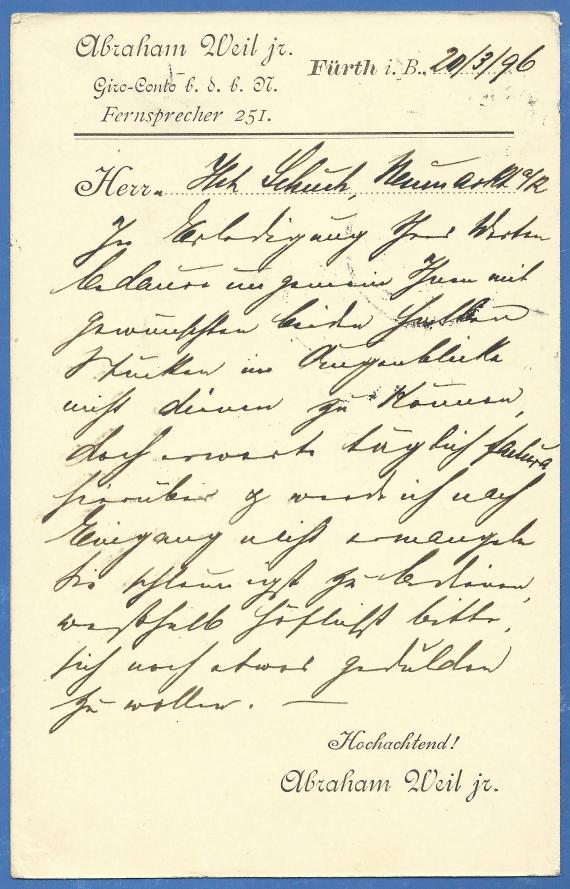 Abraham Weil jr.
Giro-Conto b. d. b. N.
Fernsprecher 251.
Fürth i. B., 20/3/96
Herrn Schuch, Neumarkt a/R
In Erledigung Ihres Werten
bedaure ungemein Ihnen mit
gewünschten beiden halben
Stücken im Augenblicke
nicht dienen zu können,
doch erwarte täglich factura
hierüber & werde ich nach
Eingang nicht ermangeln
Sie schleunigst zu bedienen,
weßhalb höflichst bitte,
sich noch etwas gedulden
zu wollen. —
Hochachtend!
Abraham Weil jr.